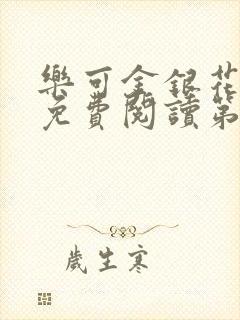 樂可金銀花
免費閱讀第
歲生寒